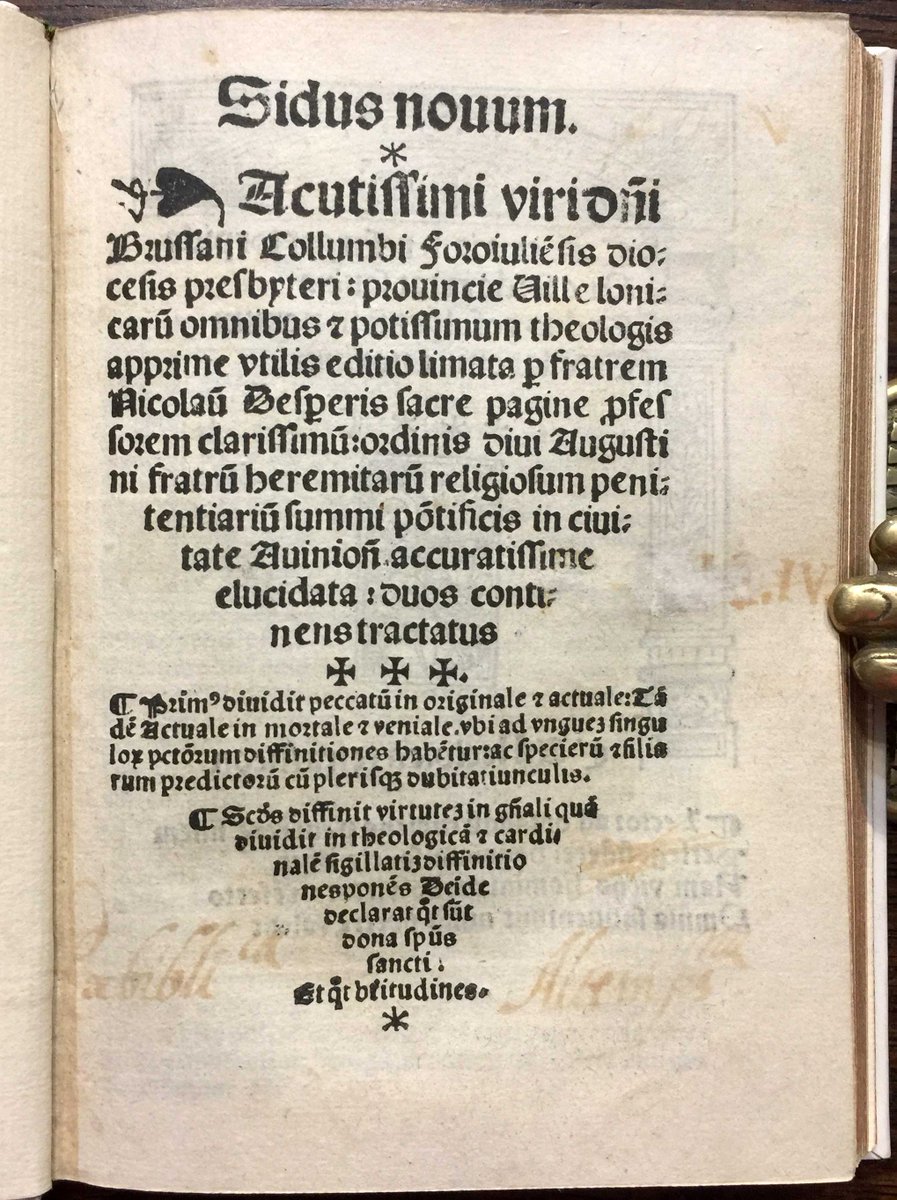 Sidus nouum.
*
❧ Acutissimi viri dñi
Brussani Collumbi Foroiuliẽsis dio⸗
cesis presbyteri : prouincie Uille loni⸗
carũ omnibus ⁊ potissimum theologis
apprime vtilis editio limata ꝑ fratrem
Nicolaũ Desꝑeris sacre pagine ꝓfes
sorem clarissimũ: ordinis diui Augusti
ni fratrũ heremitarũ religiosum peni⸗
tentiariũ summi põtificis in ciui⸗
tate Auinioñ. accuratissime
elucidata : duos conti⸗
nens tractatus
✠ ✠ ✠.
¶ Primꝰ diuidit peccatũ in originale ⁊ actuale: Tã
dẽ Actuale in mortale ⁊ veniale. vbi ad vngueꝫ singu
loꝝ pctõrum diffinitiones habẽtur: ac specierũ ⁊ filia
rum predictorũ cũ plerisqꝫ dubitatiunculis.
¶ Scõs diffinit virtuteꝫ in gñali quã
diuidit in theologicã ⁊ cardi⸗
nalẽ sigillatiꝫ diffinitio
nes ponẽs Deide
declarat qͦt sũt
dona spũs
sancti :
Et qͦt btitudines.
*